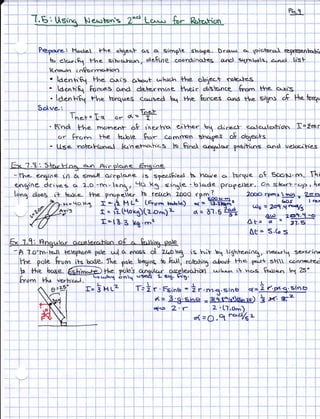 Pg. 9
7.5: Using Newton's 2nd Law for Rotation
Prepare: Model the object as a simple shape. Draw a pictorial representation
to clarify the situation, define coordinates and symbols, and list
known information
• Identify the axis about which the object rotates
• Identify forces and determine their distance from the axis
• Identify the torques caused by the forces and the signs of the torques
Solve:
τnet = Iα or α = τnet/I
• Find the moment of inertia either by direct calculation I=Σmr
or from the table for common shapes of objects
• Use rotational kinematics to find angular positions and velocities
Ex 7.8: Starting An Airplane Engine
-The engine in a small airplane is specified to have a torque of 500N·m. This
engine drives a 2.0-m-long, 40 kg single-blade propeller. On start-up, how
long does it take the propeller to reach 2000 rpm?
M=40 kg I = 1/12 ML² (From table)
I = 1/12 (40kg)(2.0m)²
I = 13.3 kg·m²
α = 37.5
Δt = 5.6 s
Ex 7.9: Angular acceleration of a falling pole
-A 7.0-m-tall telephone pole w/ a mass of 260kg is hit by lightening, nearly severing
the pole from its base. The pole begins to fall, rotating about the part still connected
to the base. Estimate the pole's angular acceleration when it has fallen by 25°
from the vertical.
θ=25° I = 1/3 ML² τ = 1/2 r·F sinθ = 1/2 r·m·g·sinθ
α = 3·g·sinθ
2·r 2·(7.0m)
α = 0.9 rad/s²